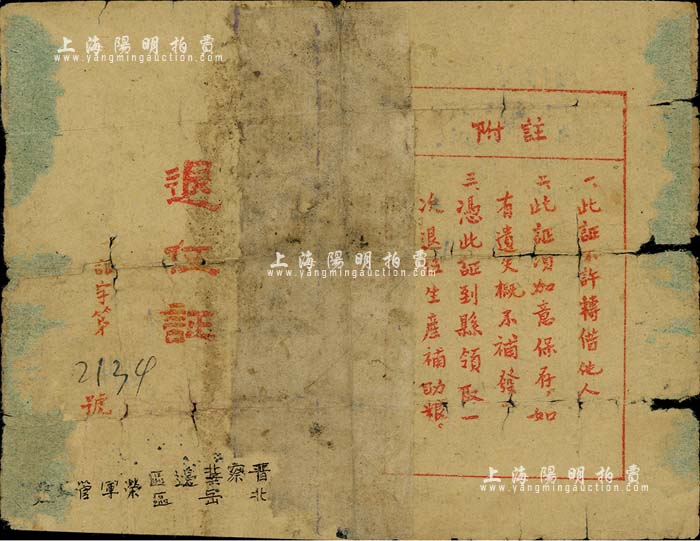 註附
一、此証不許轉借他人
二、此証須如意保存,如
有遺失概不補發。
三、憑此証到縣領取一
次退伍生產補助糧。
退伍証
証字第
2134
號
晉察冀邊區
北岳區榮軍管
上海陽明拍賣
www.yangmingauction.com
上海陽明拍賣
www.yangmingauction.com
上海陽明拍賣
www.yangmingauction.com